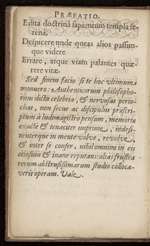 PRÆFATIO.
Edita doctrina sapientum templa se-
rena,
Despicere unde queas alios passim-
que videre
Errare, atque viam palantes quæ-
rere vitæ.
Sed finem facio si te hoc ultimum
monuero. Authorum philosopho-
rum dicta celebria, & nervosas perio-
chas, non secus ac discipulus præscri-
ptum à ludimagistro pensum, memoriæ
& inde-
sinenter in mente volve, revolve,
& inter se confer, nihil omnino in eis
otiosum & inane reputans: alias frustra
rerum obscurissimarum studio colloca-
veris operam. Vale.